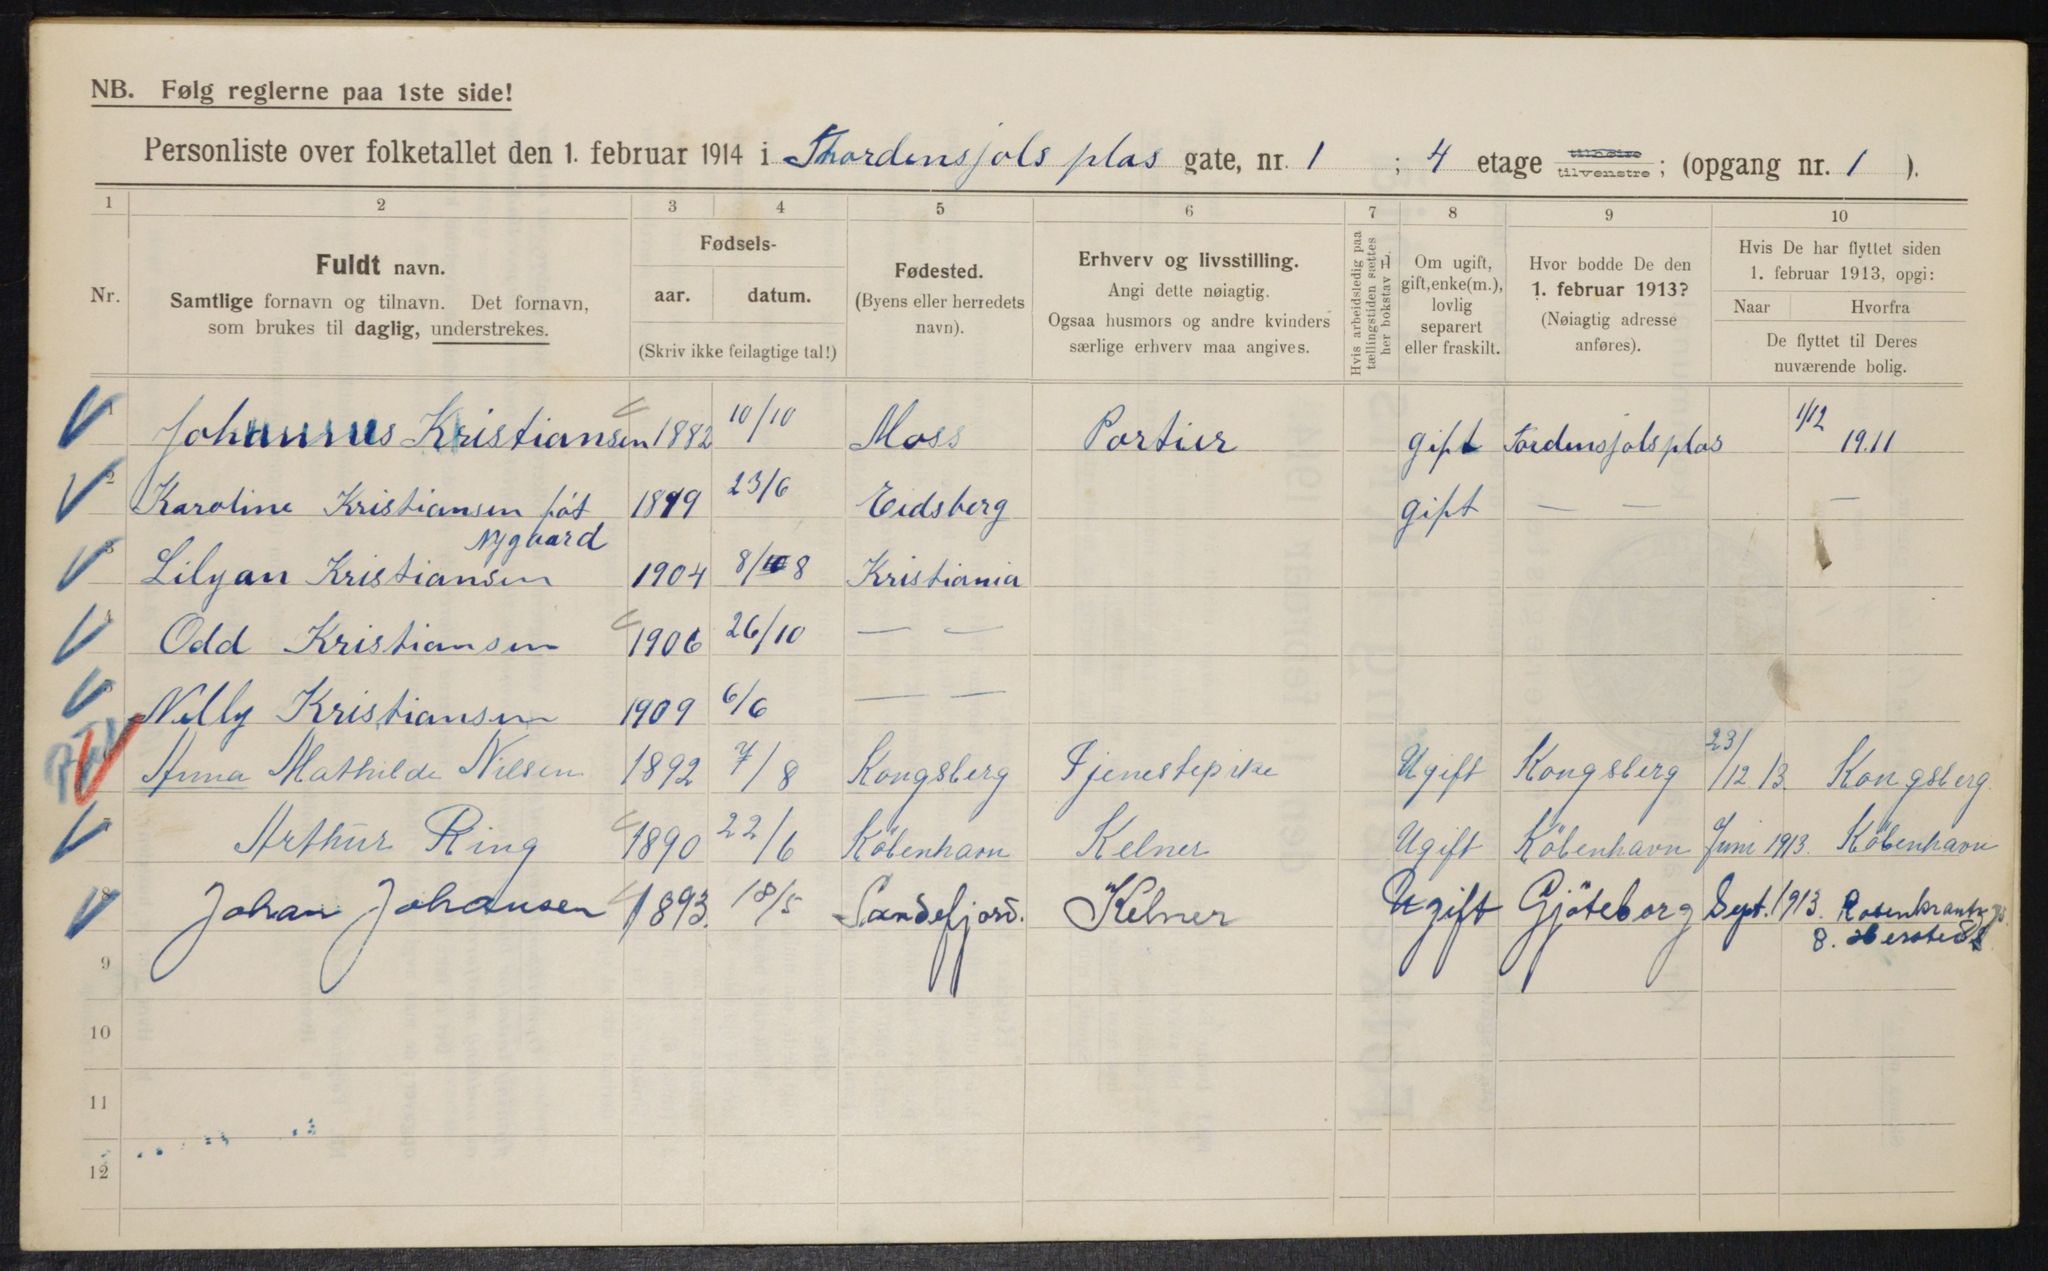 NB. Følg reglerne paa 1ste side!
Personliste over folketallet den 1. februar 1914 i Thordensjols plas gate, nr. 1 ; 4 etage tilhøire tilvenstre ; (opgang nr. 1 ).
1 2 3 4 5 6 7 8 9 10
Nr.
Fuldt navn.
Samtlige fornavn og tilnavn. Det fornavn,
som brukes til daglig, understrekes.
Fødsels-
aar. datum.
(Skriv ikke feilagtige tal!)
Fødested.
(Byens eller herredets
navn).
Erhverv og livsstilling.
Angi dette nøiagtig.
Ogsaa husmors og andre kvinders
særlige erhverv maa angives.
Hvis arbeidsledig paa
tællingstiden sættes
her bokstav L.
Om ugift,
gift, enke(m.),
lovlig
separert
eller fraskilt.
Hvor bodde De den
1. februar 1913?
(Nøiagtig adresse
anføres).
Hvis De har flyttet siden
1. februar 1913, opgi:
Naar Hvorfra
De flyttet til Deres
nuværende bolig.
1 Johannes Kristiansen 1882 10/10 Moss Portier gift Tordensjols plas 1/12 19.11
2 Karoline Kristiansen föt 1879 23/6 Eidsberg gift — — —
Nygaard
3 Lilyan Kristiansen 1904 8/8 Kristiania
4 Odd Kristiansen 1906 26/10 — —
5 Nelly Kristiansen 1909 6/6 — —
Anna Mathilde Nilsen 1892 7/8 Kongsberg Tjenestepike Ugift Kongsberg 23/12 13. Kongsberg.
7 Arthur Ring 1890 22/6 Köbenhavn Kelner Ugift Köbenhavn Juni 1913. Köbenhavn
8 Johan Johansen 1893. 18/5 Sandefjord. Kelner Ugift Gjöteborg Sept. 1913. Rosenkrantz
8.
9
10
11
12